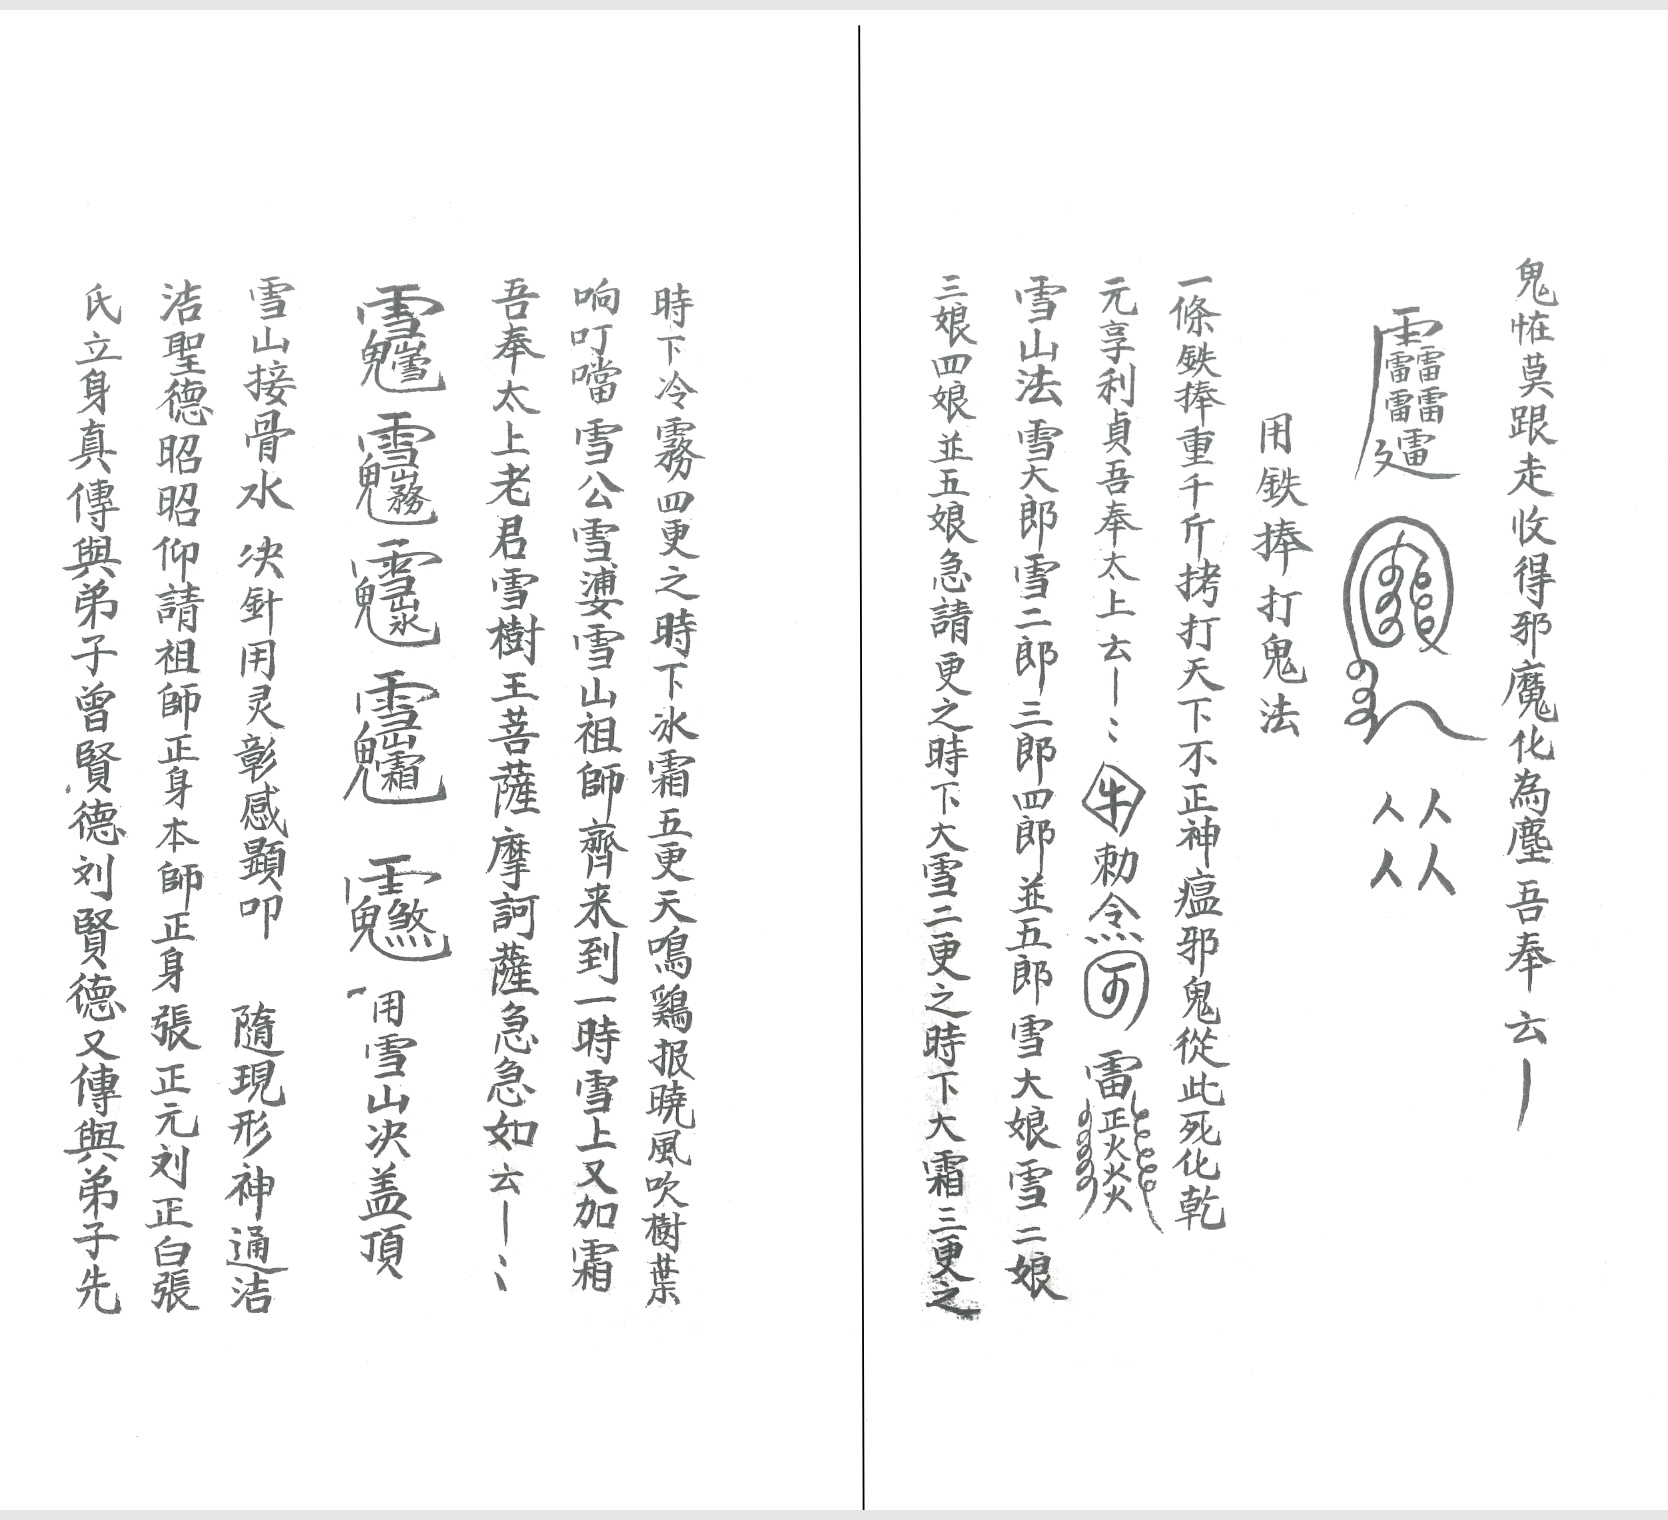 鬼恠莫跟走收得邪魔化為塵吾奉云
人人人人
用鉄捧打鬼法
一條鉄捧重千斤拷打天下不正神瘟邪鬼從此死化乾
元享利貞吾奉太上云 牛勅令可雷正火炎火
雪山法雪大郎雪二郎三郎四郎並五郎雪大娘雪二娘
三娘四娘並五娘急請更之時下大雪二更之時下大霜三更之
時下冷霧四更之時下冰霜五更天鳴鷄报曉風吹樹葉
响叮噹雪公雪婆雪山祖師齊来到一時雪上又加霜
吾奉太上老君雪樹王菩薩摩訶薩急急如云
用雪山决盖頂
雪山接骨水决針用灵彰感顯叩 隨現形神通洁
洁聖德昭昭仰請祖師正身本師正身張正元刘正白張
氏立身真傳與弟子曾賢德刘賢德又傳與弟子先